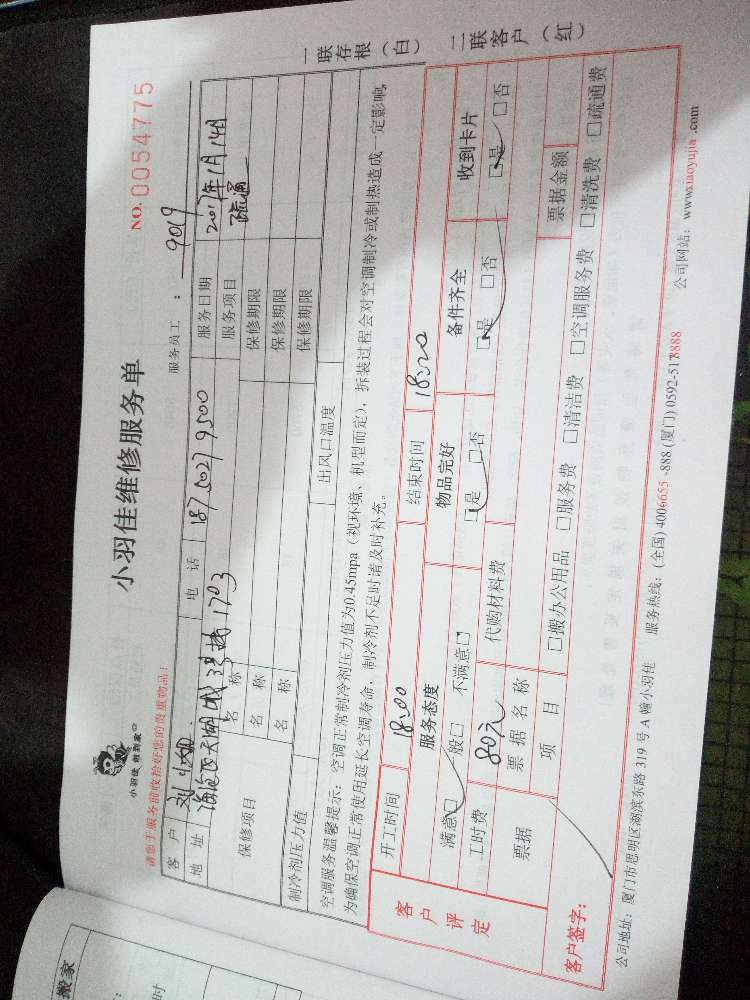 小羽佳 都到家
小羽佳维修服务单
NO. 0054775
请您于服务前收拾好您的贵重物品！
服务员工： 9019
客 户 电 话 187 5027 9500 服务日期 2017年1月14日
地 址 1703 服务项目 疏通
保修项目 名 称 保修期限
名 称 保修期限
名 称 保修期限
制冷剂压力值 出风口温度
空调服务温馨提示：空调正常制冷剂压力值为0.45mpa（视环境、机型而定），拆装过程会对空调制冷或制热造成一定影响，
为确保空调正常使用延长空调寿命，制冷剂不足时请及时补充。
一联存根（白） 二联客户（红）
客户评定
开工时间 18:00 结束时间 18:20
服务态度 物品完好 备件齐全 收到卡片
满意□ 一般□ 不满意□ □是 □否 □是 □否 □是 □否
工时费 80元 代购材料费
票据 票据名称 票据金额
项 目 □搬办公用品 □服务费 □清洁费 □空调服务费 □清洗费 □疏通费
客户签字：
公司地址：厦门市思明区湖滨东路 319 号 A 幢小羽佳 服务热线：(全国) 4006655-888 (厦门) 0592-5178888 公司网站：www.xiaoyujia.com
搬家
时